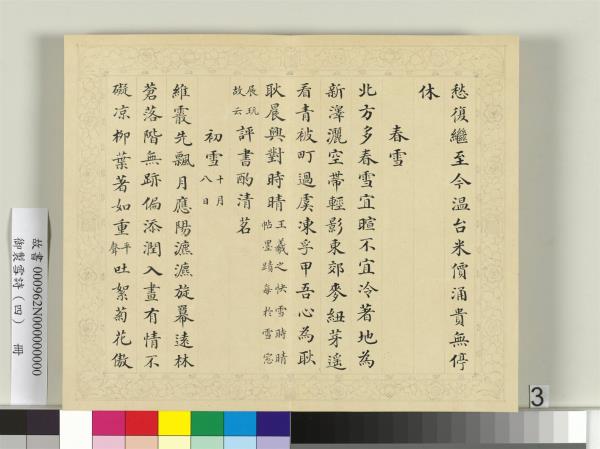 愁復繼至今温台米價涌貴無停
休
春雪
北方多春雪宜暄不宜冷著地為
新澤灑空帶輕影東郊麥紐芽遥
看青被町過虞凍孚甲吾心為耿
耿晨興對時晴王羲之快雪時晴帖墨蹟每於雪窓
展玩故云評書酌清茗
初雪十月八日
維霰先飄月應陽漉漉旋冪遠林
蒼落階無跡偏添潤入畫有情不
礙凉柳葉著如重平聲吐絮菊花傲
故書000962N000000000
御製雪詩（四） 冊
3